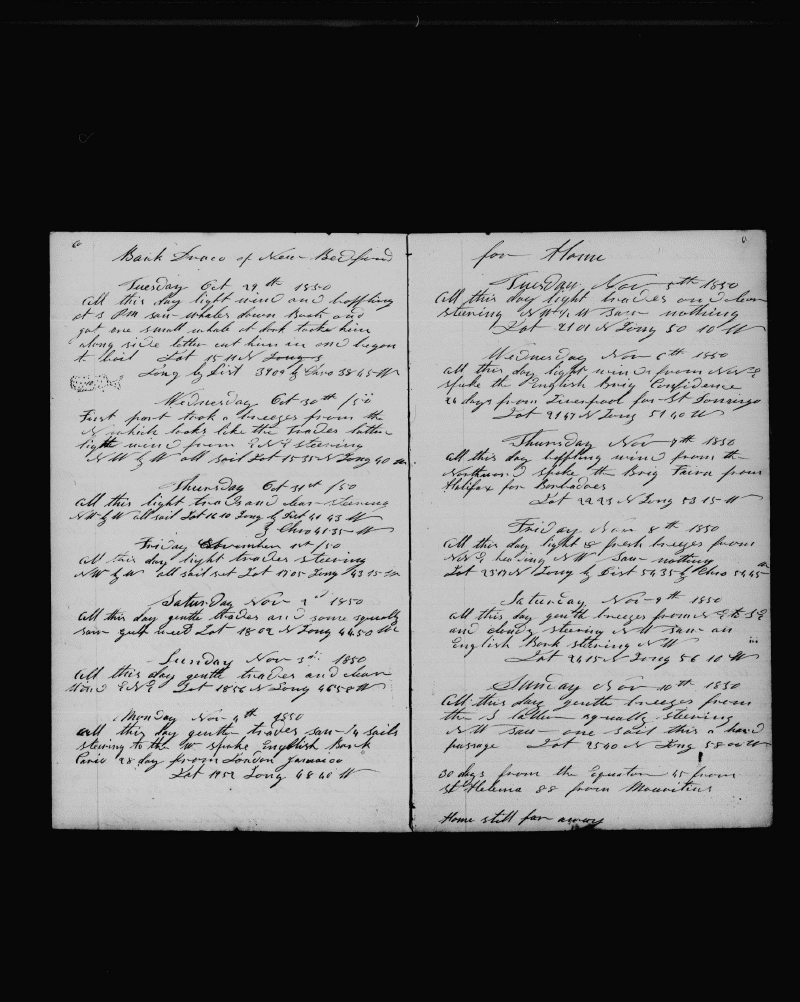 Bark Draco of New Bedford
Tuesday Oct 29th 1850
all this day light wind and baffling
at 3 PM saw whales down Boats and
got one small whale at dark took him
along side latter cut him in and began
to boil Lat 15 11 N Long
Long by Dist 39 09 by Chro 38 45 W
Wednesday Oct 30th /50
First part took a breeze from the
N which looks like the trades latter
light wind from ENE steering
NW by W all sail Lat 15 35 N Long 40
Thursday Oct 31st /50
all this light trades and clear steering
NW by W all sail Lat 16 10 Long by Dist 41 43 W
by Chro 41 35 W
Friday November 1st /50
all this day light trades steering
NW by W all sail set Lat 17 05 Long 43 15
Saturday Nov 2d 1850
all this day gentle trades and some squally
saw gulf weed Lat 18 02 N Long 44 50 W
Sunday Nov 3d 1850
all this day gentle trades and clear
wind ENE Lat 18 56 N Long 46 58 W
Monday Nov 4th 1850
all this day gentle trades saw 4 sails
steering to the W spoke English Bark
28 day from London Jamaica
Lat 19 52 Long 48 40 W
for Home
Tuesday Nov 5th 1850
all this day light trades and clear
steering NW by W saw nothing
Lat 21 01 N Long 50 10 W
Wednesday Nov 6th 1850
all this day light winds from NNE
spoke the English Brig Confidence
26 days from Liverpool for St Domingo
Lat 21 47 N Long 51 40 W
Thursday Nov 7th 1850
all this day baffling wind from the
Northward spoke the Brig from
Halifax for Barbadoes
Lat 22 23 N Long 53 15 W
Friday Nov 8th 1850
all this day light & fresh breezes from
NNE heading NW saw nothing
Lat 23 17 N Long by Dist 54 35 by Chro 54 45
Saturday Nov 9th 1850
all this day gentle breezes from NE to SE
and cloudy steering NW saw an
English Bark steering NW
Lat 24 15 N Long 56 10 W
Sunday Nov 10th 1850
all this day gentle breezes from
the S latter squally steering
NW saw one sail this a hard
passage Lat 25 40 N Long 58 00 W
30 days from the Equator 45 from
St Helena 88 from Mauritius
Home still far away